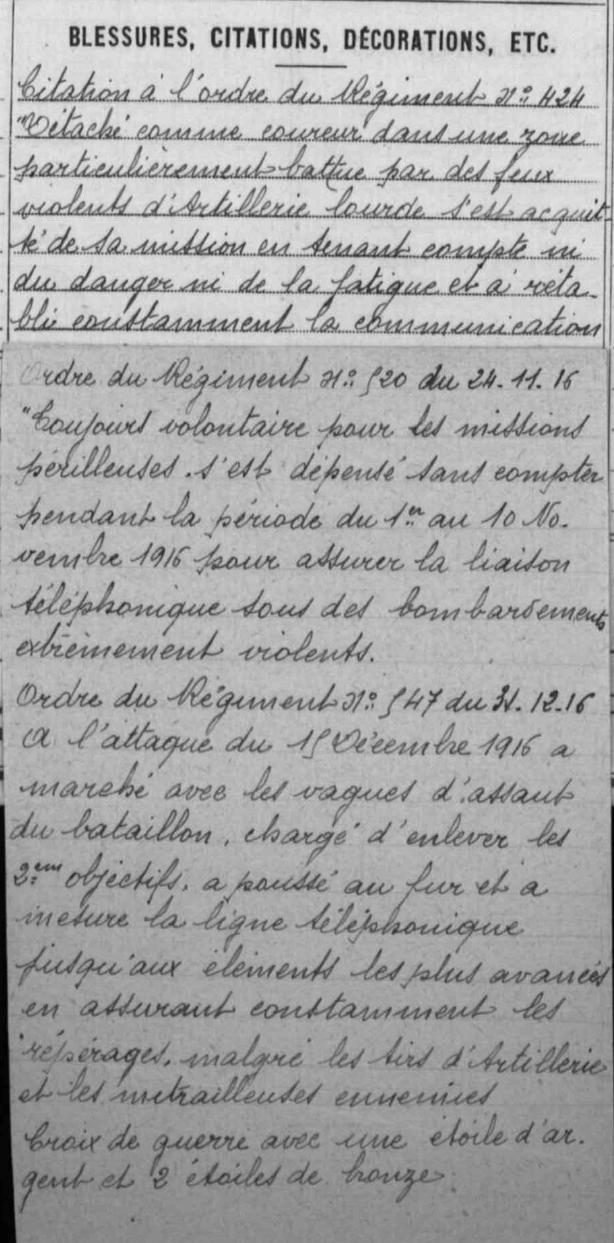 BLESSURES, CITATIONS, DÉCORATIONS, ETC.
Citation à l'ordre du Régiment N° 424
"Détaché comme coureur dans une zone
particulièrement battue par des feux
violents d'Artillerie lourde s'est acquit-
té de sa mission en tenant compte ni
du danger ni de la fatigue et a réta-
bli constamment la communication
Ordre du Régiment N° 520 du 24.11.16
"Toujours volontaire pour les missions
périlleuses. s'est dépensé sans compter
pendant la période du 1er au 10 No-
vembre 1916 pour assurer la liaison
téléphonique sous des bombardements
extrèmement violents.
Ordre du Régiment N° 547 du 31.12.16
A l'attaque du 15 Décembre 1916 a
marché avec les vagues d'assaut
du bataillon, chargé d'enlever les
2ème objectifs, a poussé au fur et a
mesure la ligne téléphonique
jusqu'aux éléments les plus avancés
en assurant constamment les
répérages, malgré les tirs d'Artillerie
et les mitrailleuses ennemies
Croix de guerre avec une étoile d'ar-
gent et 2 étoiles de bronze